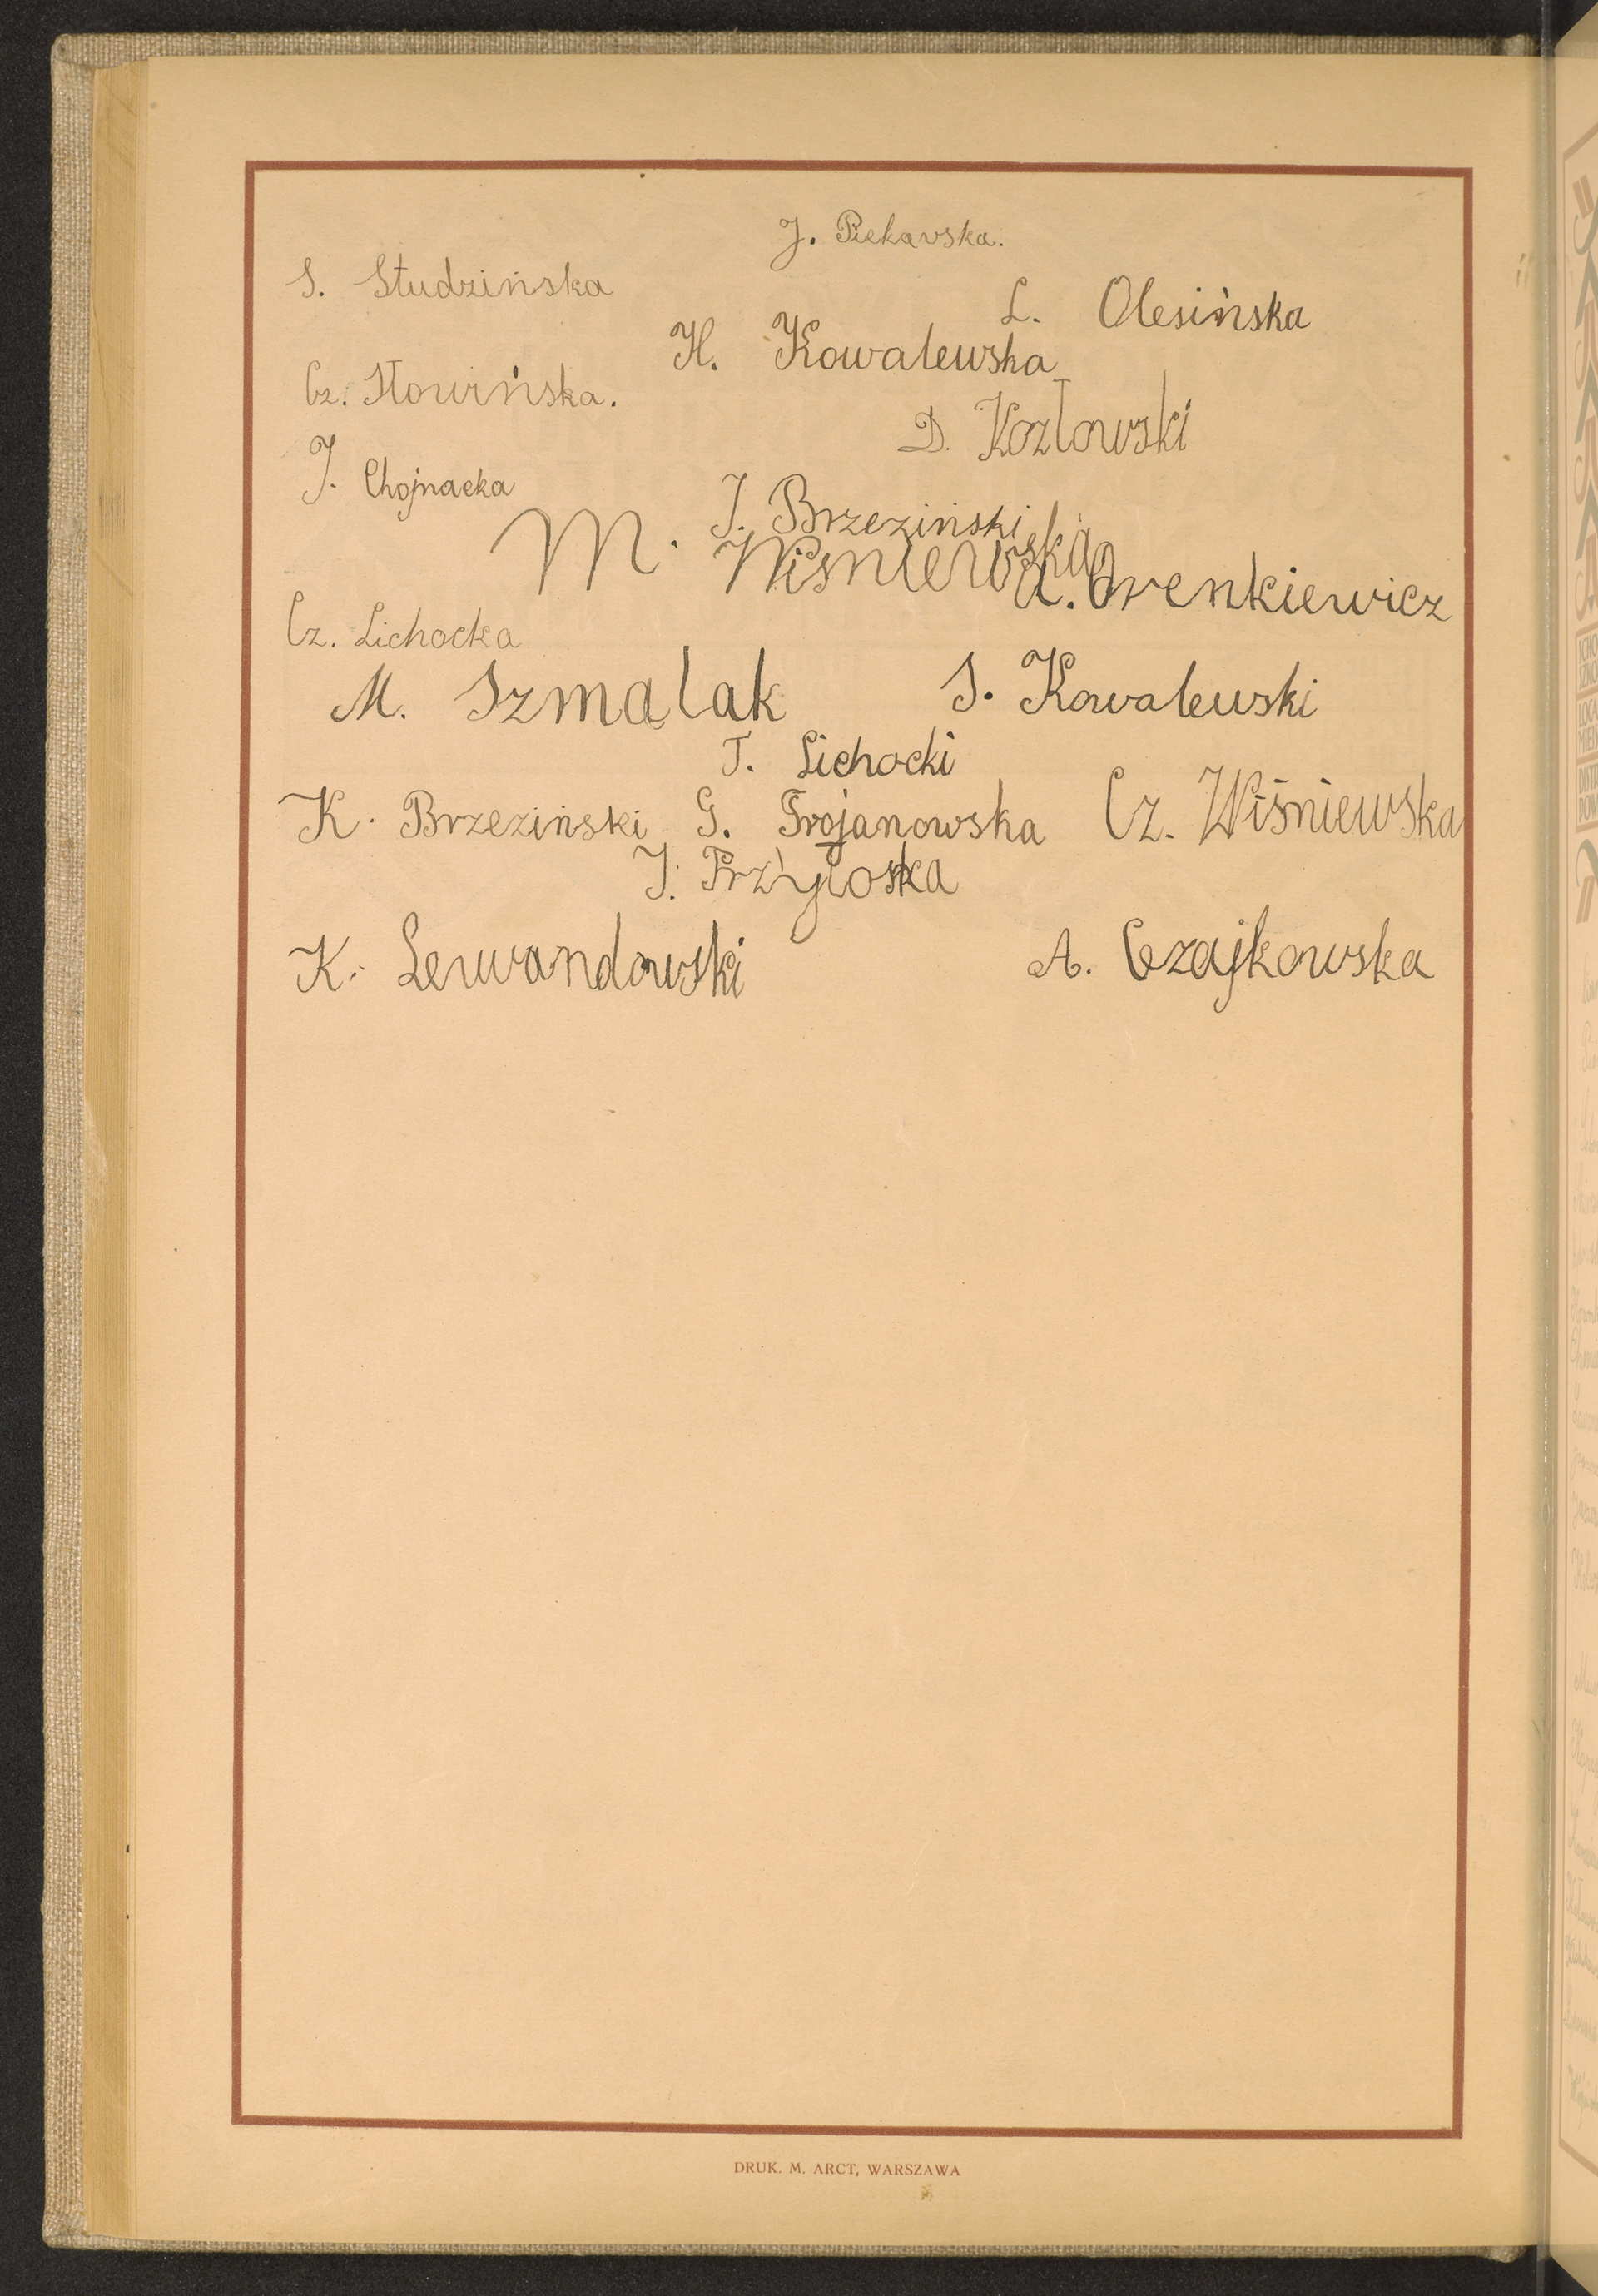 J. Piekarska.
S. Studzińska
L. Olesińska
H. Kowalewska
Cz. Słowińska.
D. Kozłowski
J. Chojnacka
J. Brzeziński
M. Wiśniewska
A. Orenkiewicz
Cz. Lichocka
M. Szmalak
S. Kowalewski
T. Lichocki
K. Brzeziński G. Trojanowska Cz. Wiśniewska
J.
K. Lewandowski
A. Czajkowska
DRUK. M. ARCT, WARSZAWA